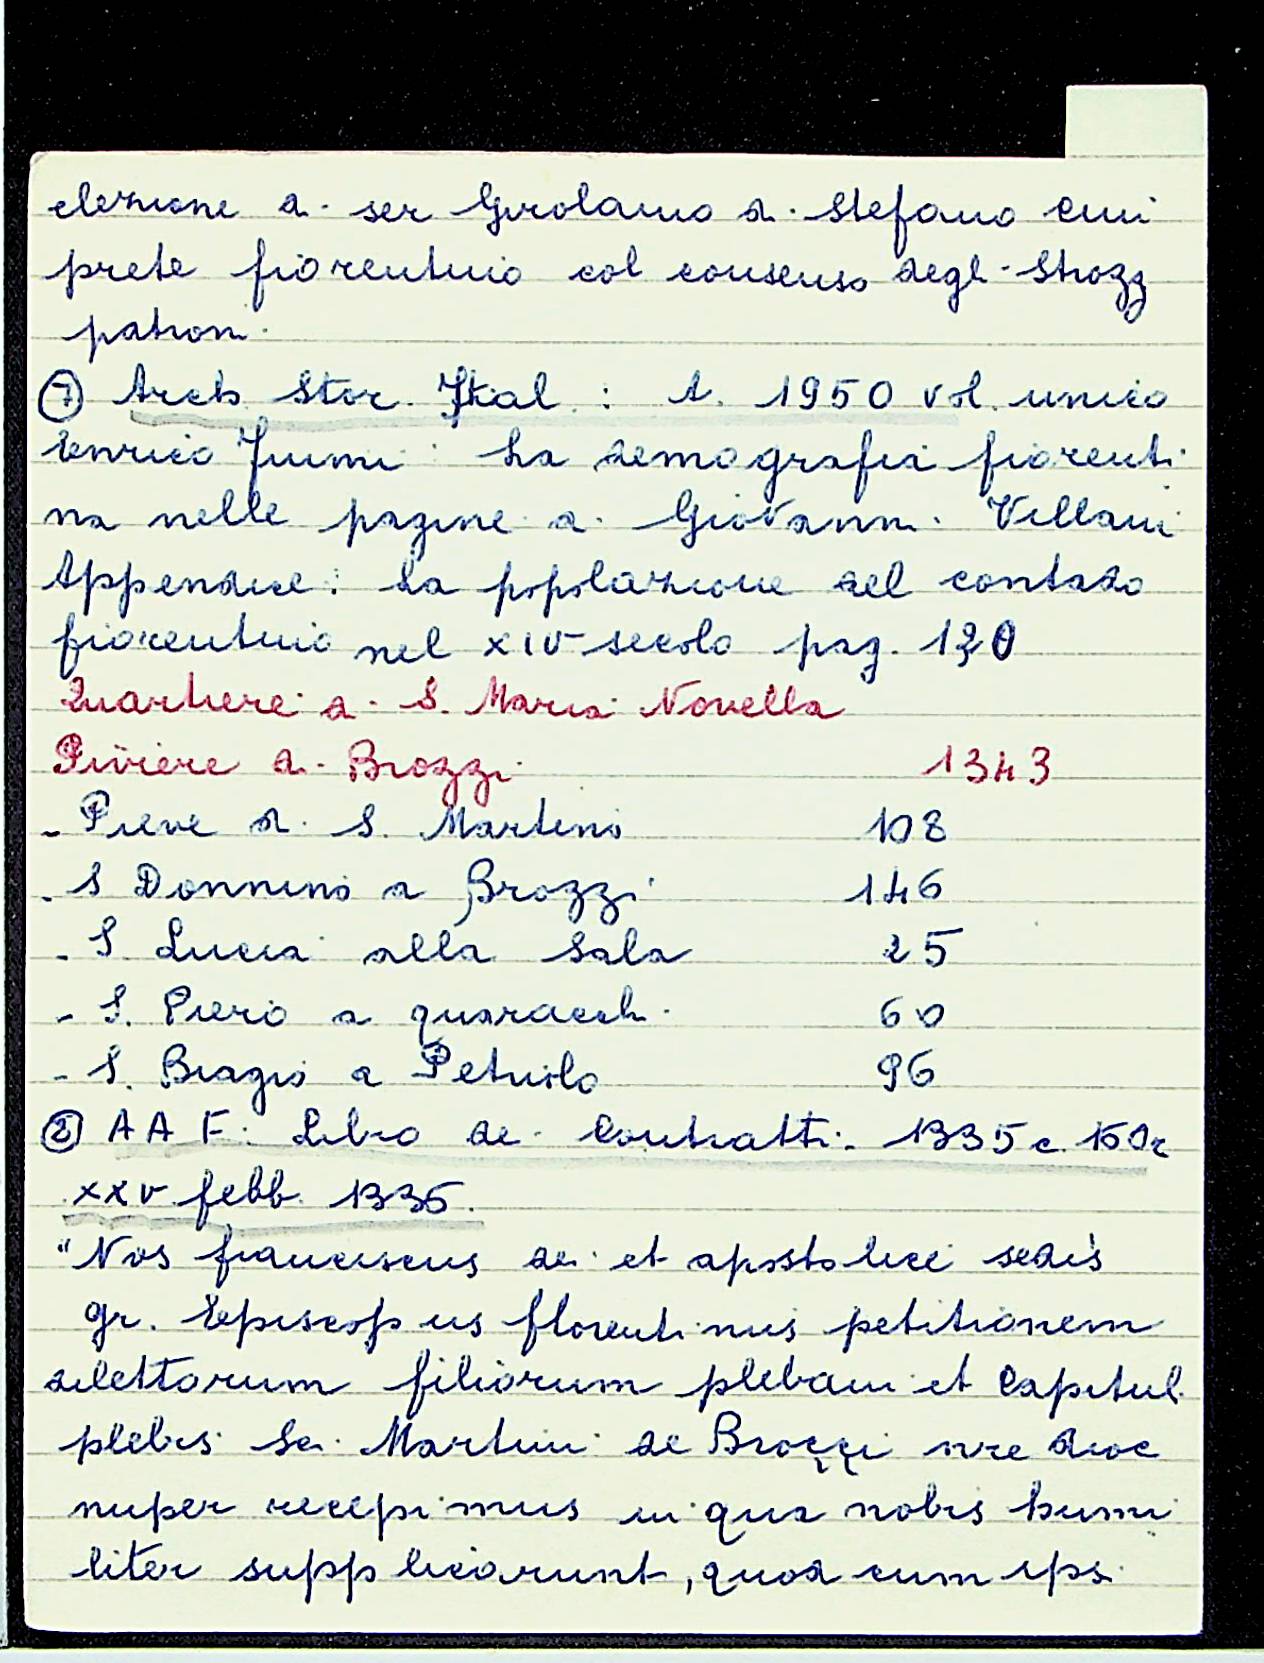 elezione di ser Girolamo di Stefano Cini
prete fiorentino col consenso degli Strozzi
patroni
⑦ Arch Stor. Ital : A. 1950 vol. unico
Enrico Fiumi : La demografia fiorenti
na nelle pagine di Giovanni Villani
Appendice : La popolazione del contado
fiorentino nel XIV secolo pag. 120
Quartiere di S. Maria Novella
Piviere di Brozzi 1343
- Pieve di S. Martino 108
- S Donnino a Brozzi 146
- S. Lucia alla Sala 25
- S. Piero a quaracchi 60
- S. Biagio a Petriolo 96
⑧ A A F. Libro dei Contratti. 1335 c. 150r
XXV febb. 1335.
"Nos franciscus dei et apostolice sedis
gr. Episcopus florentinus petitionem
dilettorum filiorum plebani et Capituli
plebis Sci Martini de Broççi nre dioc
nuper recepimus in qua nobis humi
liter supplicarunt, quod cum ipsi